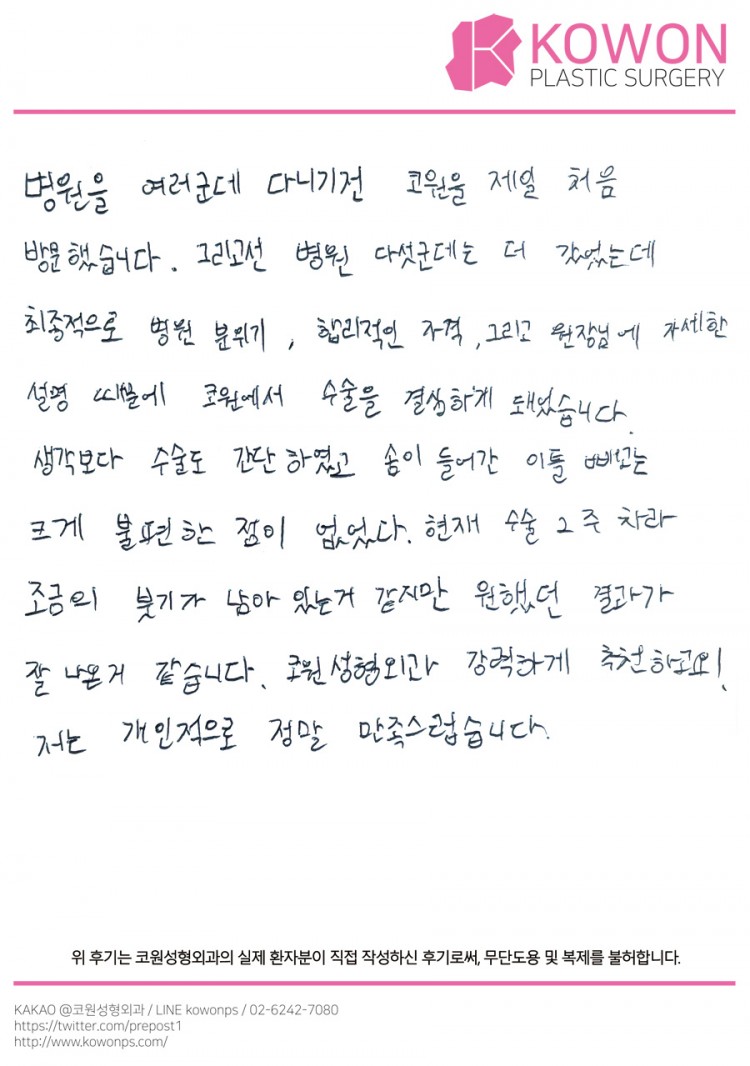 KOWON
PLASTIC SURGERY
병원을 여러군데 다니기전 코원을 제일 처음
방문했습니다. 그리고선 병원 다섯군데는 더 갔었는데
최종적으로 병원 분위기, 합리적인 가격, 그리고 원장님에 자세한
설명 때문에 코원에서 수술을 결심하게 됐었습니다.
생각보다 수술도 간단하였고 솜이 들어간 이틀 빼고는
크게 불편한 점이 없었다. 현재 수술 2주 차라
조금의 붓기가 남아 있는거 같지만 원했던 결과가
잘 나온거 같습니다. 코원성형외과 강력하게 추천하고요!
저는 개인적으로 정말 만족스럽습니다.
위 후기는 코원성형외과의 실제 환자분이 직접 작성하신 후기로써, 무단도용 및 복제를 불허합니다.
KAKAO @코원성형외과 / LINE kowonps / 02-6242-7080
https://twitter.com/prepost1
http://www.kowonps.com/